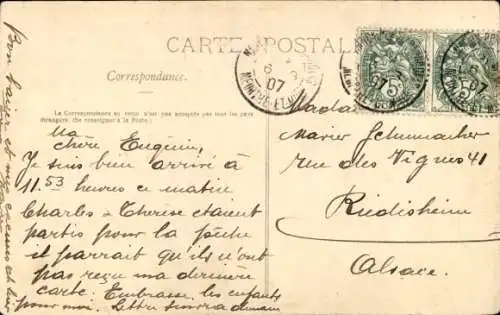 CARTE POSTALE
Correspondance.
La Correspondance au recto n'est pas acceptée par tous les pays
étrangers. (Se renseigner à la Poste.)
Ma
chère Eugénie,
Je suis bien arrivé à
11.53 heures ce matin
Charles & Thérèse étaient
partis pour la pêche
il parrait qu'ils n'ont
pas reçu ma dernière
carte. Embrasse les enfants
pour moi. Lettre suivra demain
Bon baiser et mes
Madame
Xavier Schumacher
rue des Vignes 41
Riedisheim
Alsace.
6
07
5
5
07